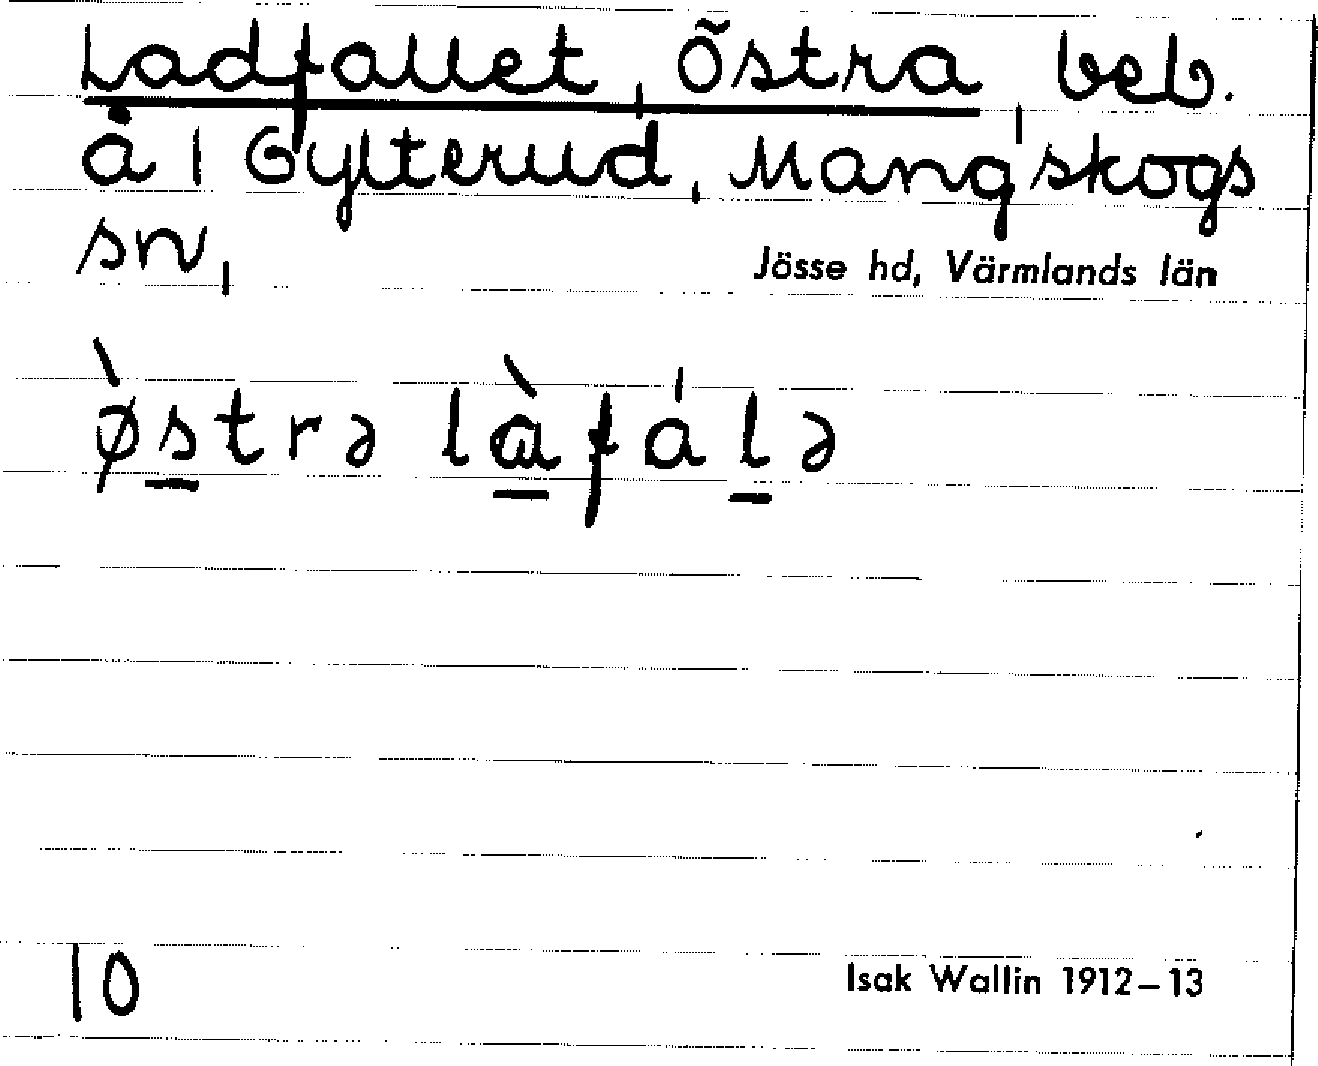 Ladfallet, Östra, beb.
å 1 Gylterud, Mangskogs
sn,
Jösse hd, Värmlands län
ø̀strə là̱fáḻə
10
Isak Wallin 1912–13